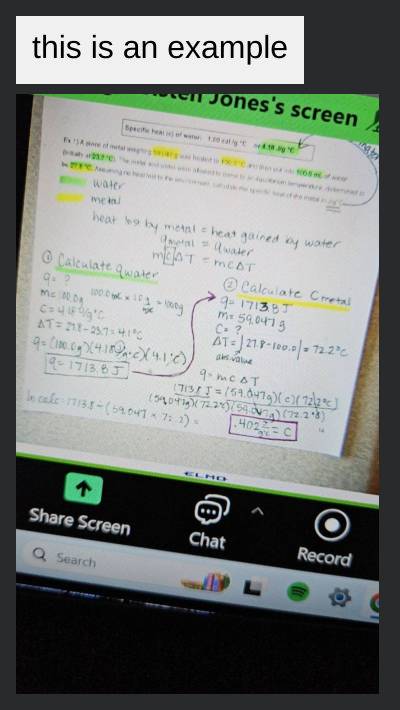 this is an example
Jones's screen
Specific heat (c) of water: 1.00 cal/g °C or 4.18 J/g °C
Ex 1) A piece of metal weighing was heated to 100.0 °C and then put into 100.0 mL of water
(initially at 23.7 °C). The metal and water were allowed to come to an equilibrium temperature, determined to
be 27.8 °C. Assuming no heat lost to the environment, calculate the specific heat of the metal in
water
metal
heat lost by metal = heat gained by water
qmetal = qwater
mcΔT = mcΔT
① Calculate qwater
q = ?
m = 100.0g
c = 4.18 J/g°C
ΔT = 27.8 - 23.7 = 4.1°C
q = (100.0g)(4.18 J/g·c)(4.1°C)
q = 1713.8 J
② Calculate Cmetal
q = 1713.8 J
m = 59.047 g
C = ?
ΔT = |27.8 - 100.0| = 72.2°C
abs. value
q = mcΔT
1713.8 J = (59.047g)(c)(72.2°C)
(59.047g)(72.2°C) (59.047g)(72.2°C)
.402 J/g°C = C
In calc: 1713.8 ÷ (59.047 × 72.2) =
ELMO
Share Screen
Chat
Record
Search